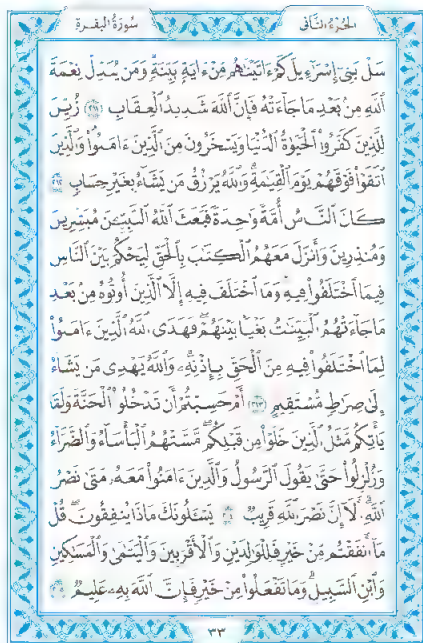 سُورَةُ البَقَرَةِ الجُزءُ الثَّانِى
سَلْ بَنِىٓ إِسْرَٰٓءِيلَ كَمْ ءَاتَيْنَٰهُم مِّنْ ءَايَةٍۭ بَيِّنَةٍۗ وَمَن يُبَدِّلْ نِعْمَةَ
ٱللَّهِ مِنۢ بَعْدِ مَا جَآءَتْهُ فَإِنَّ ٱللَّهَ شَدِيدُ ٱلْعِقَابِ ٢١١ زُيِّنَ
لِلَّذِينَ كَفَرُوا۟ ٱلْحَيَوٰةُ ٱلدُّنْيَا وَيَسْخَرُونَ مِنَ ٱلَّذِينَ ءَامَنُوا۟ۘ وَٱلَّذِينَ
ٱتَّقَوْا۟ فَوْقَهُمْ يَوْمَ ٱلْقِيَٰمَةِۗ وَٱللَّهُ يَرْزُقُ مَن يَشَآءُ بِغَيْرِ حِسَابٍ ٢١٢
كَانَ ٱلنَّاسُ أُمَّةً وَٰحِدَةً فَبَعَثَ ٱللَّهُ ٱلنَّبِيِّـۧنَ مُبَشِّرِينَ
وَمُنذِرِينَ وَأَنزَلَ مَعَهُمُ ٱلْكِتَٰبَ بِٱلْحَقِّ لِيَحْكُمَ بَيْنَ ٱلنَّاسِ
فِيمَا ٱخْتَلَفُوا۟ فِيهِۚ وَمَا ٱخْتَلَفَ فِيهِ إِلَّا ٱلَّذِينَ أُوتُوهُ مِنۢ بَعْدِ
مَا جَآءَتْهُمُ ٱلْبَيِّنَٰتُ بَغْيًۢا بَيْنَهُمْۖ فَهَدَى ٱللَّهُ ٱلَّذِينَ ءَامَنُوا۟
لِمَا ٱخْتَلَفُوا۟ فِيهِ مِنَ ٱلْحَقِّ بِإِذْنِهِۦۗ وَٱللَّهُ يَهْدِى مَن يَشَآءُ
إِلَىٰ صِرَٰطٍ مُّسْتَقِيمٍ ٢١٣ أَمْ حَسِبْتُمْ أَن تَدْخُلُوا۟ ٱلْجَنَّةَ وَلَمَّا
يَأْتِكُم مَّثَلُ ٱلَّذِينَ خَلَوْا۟ مِن قَبْلِكُمۖ مَّسَّتْهُمُ ٱلْبَأْسَآءُ وَٱلضَّرَّآءُ
وَزُلْزِلُوا۟ حَتَّىٰ يَقُولَ ٱلرَّسُولُ وَٱلَّذِينَ ءَامَنُوا۟ مَعَهُۥ مَتَىٰ نَصْرُ
ٱللَّهِۗ أَلَآ إِنَّ نَصْرَ ٱللَّهِ قَرِيبٌ ٢١٤ يَسْـَٔلُونَكَ مَاذَا يُنفِقُونَۖ قُلْ
مَآ أَنفَقْتُم مِّنْ خَيْرٍ فَلِلْوَٰلِدَيْنِ وَٱلْأَقْرَبِينَ وَٱلْيَتَٰمَىٰ وَٱلْمَسَٰكِينِ
وَٱبْنِ ٱلسَّبِيلِۗ وَمَا تَفْعَلُوا۟ مِنْ خَيْرٍ فَإِنَّ ٱللَّهَ بِهِۦ عَلِيمٌ ٢١٥
٣٣